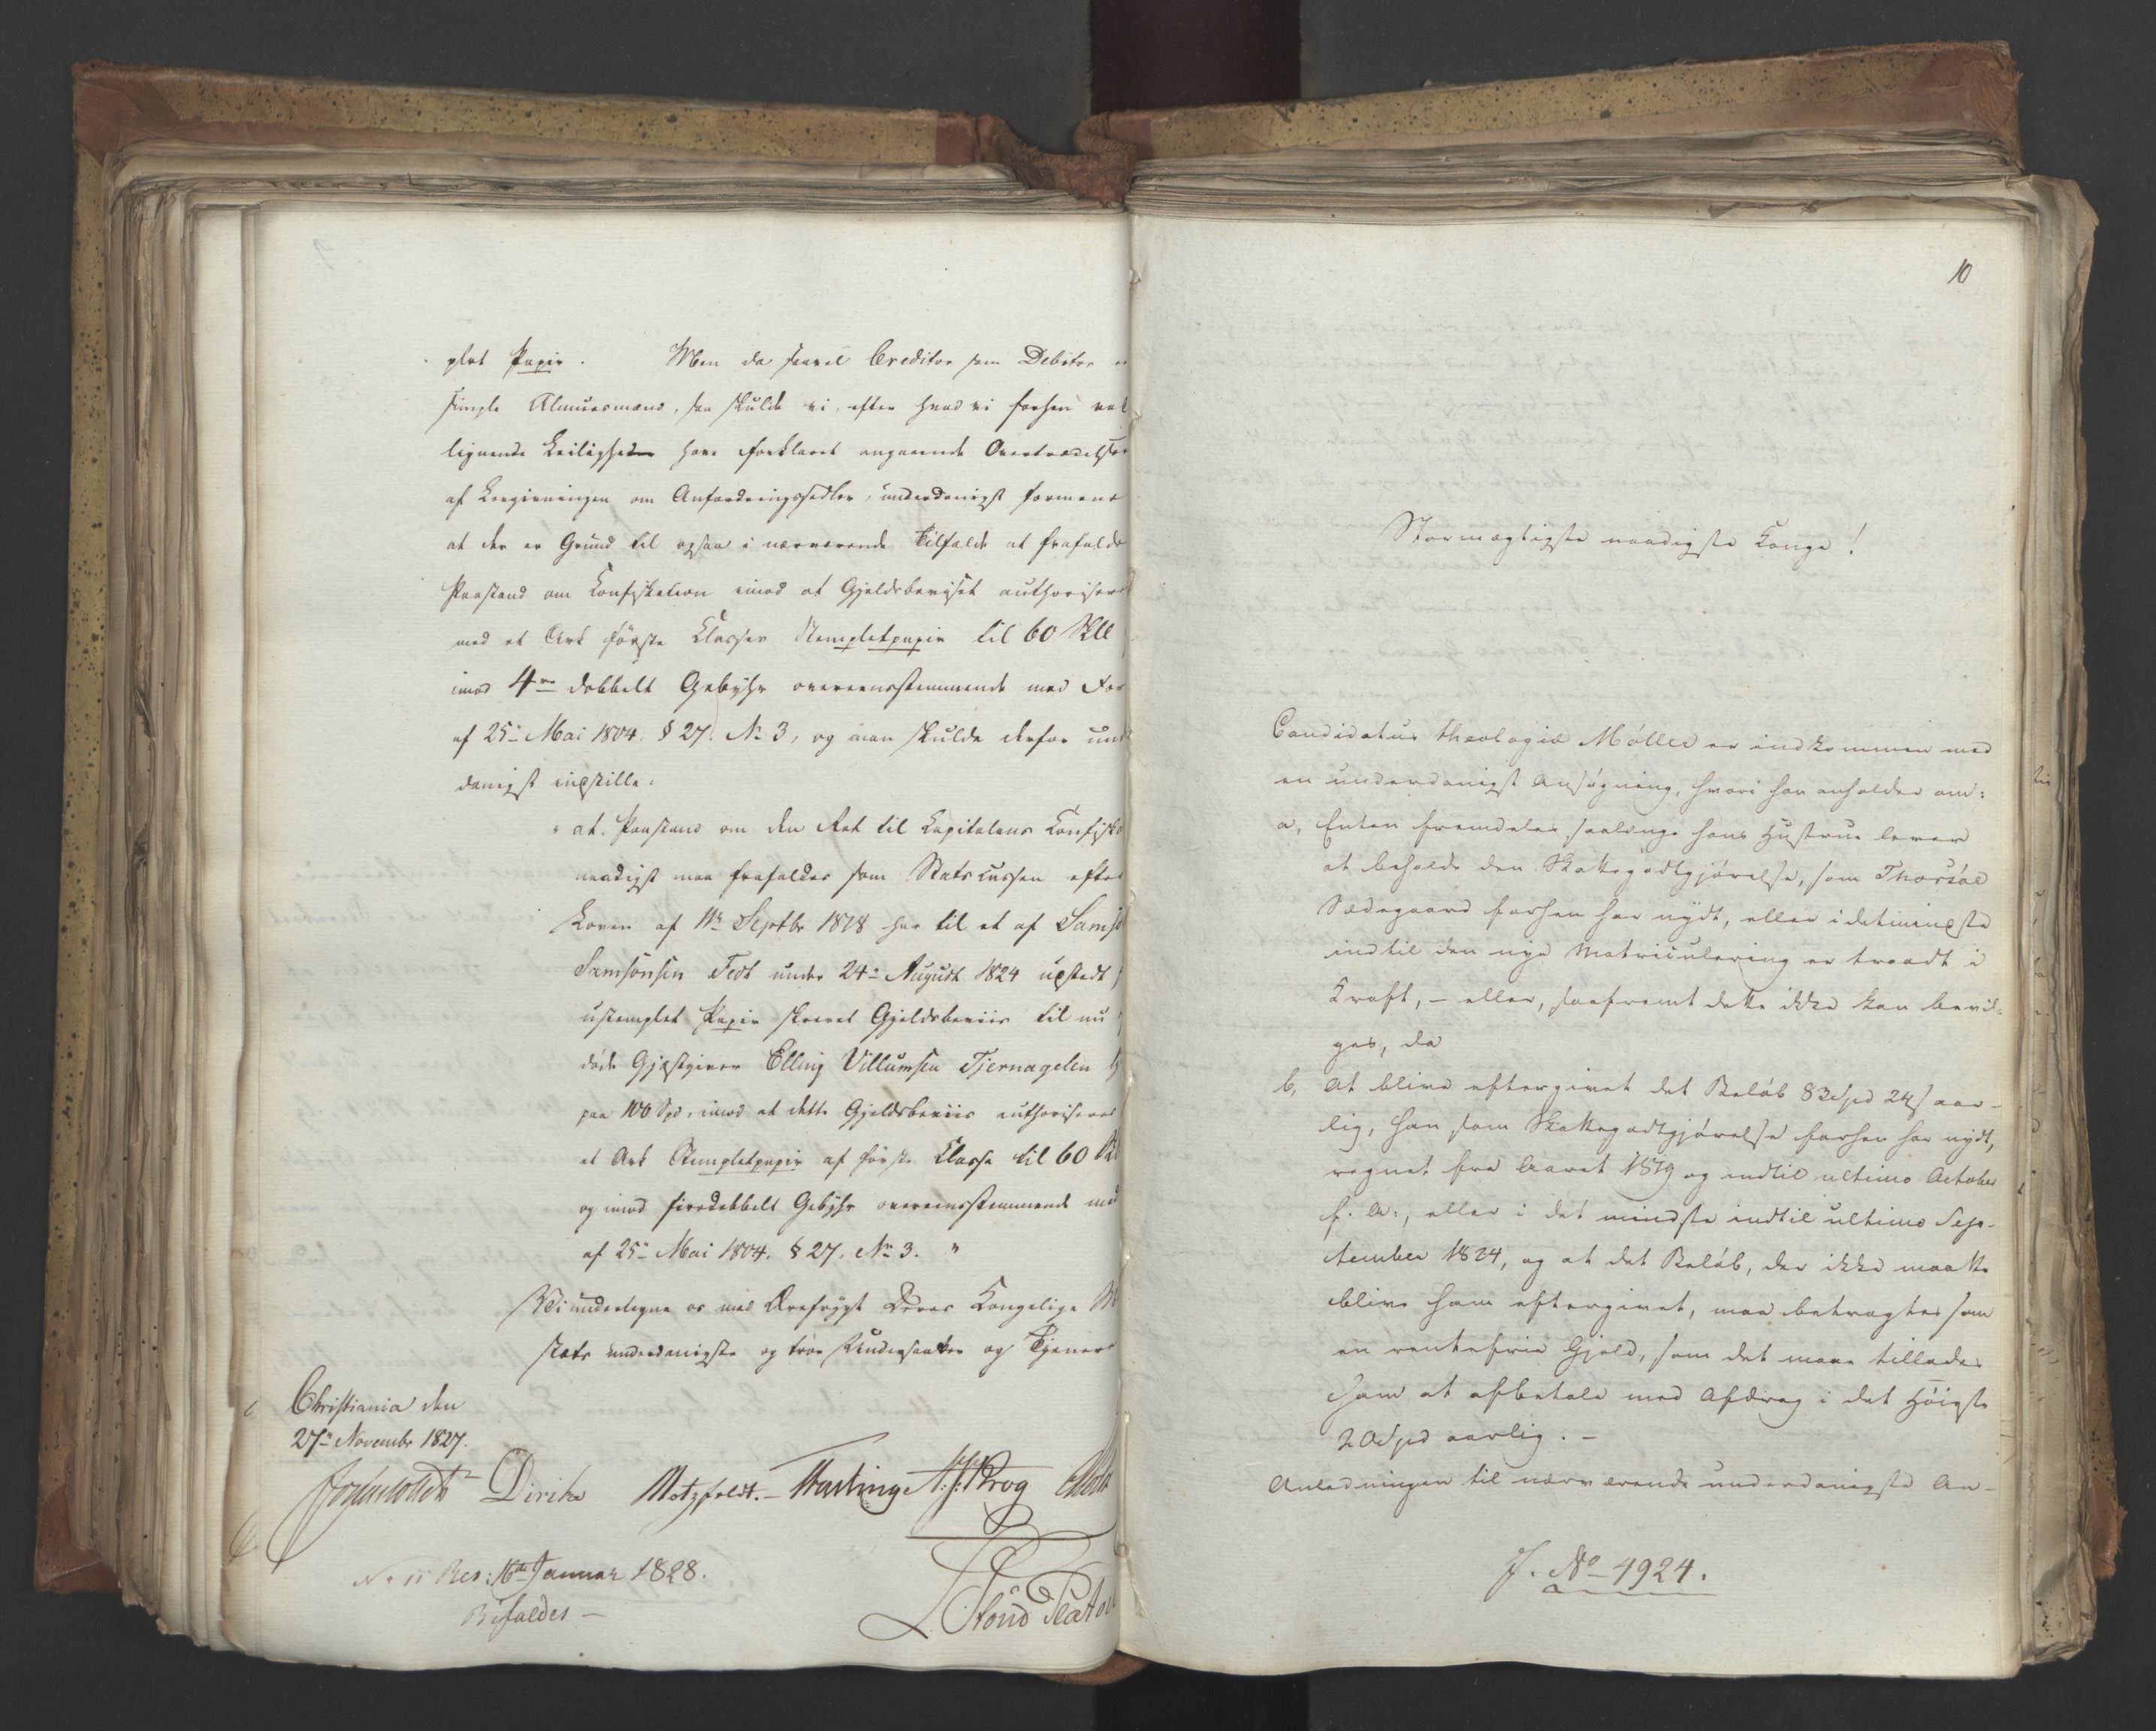 plet Papir. Men da saavel Creditor som Debitor e
simple Almuesmænd, saa skulde vi, efter hvad vi forhen ved
lignende Leilighed have forklaret angaaende Overtrædelser
af Lovgivningen om Anfordringssedler, underdanigst formene
at der er Grund til ogsaa i nærværende Tilfælde at frafalde
Paastand om Confiskation imod at Gjeldsbeviset authorisere
med et Ark første Classes Stempletpapir til 60 Skll
imod 4re dobbelt Gebyhr overeensstemmende med For
af 25de Mai 1804. § 27. No 3, og man skulde derfor und
danigst indstille:
"at Paastand om den Ret til Capitalens Confisk
naadigst maa frafaldes som Statscassen efter
Loven af 11te Septbr 1818 har til et af Sams
Samsonsen Fedt under 24de August 1824 udstedt
ustemplet Papir skrevet Gjeldsbeviis til nu
døde Gjæstgiver Elling Villumsen Tjernagelen
paa 100 Spd, imod at dette Gjeldsbeviis authoriseres
et Ark Stempletpapir af første Classe til 60
og imod firedobbelt Gebyhr overeensstemmende med
af 25de Mai 1804. § 27. No 3. "
Vi undertegne os med Ærefrygt Deres Kongelige M
stæts underdanigste og troe Undersaatter og Tjenere
Christiania den
27de Novembr 1827.
Diriks Motzfeldt. Krog
No 11 Res: 16de Januar 1828.
Bifaldes —
10
Stormægtigste naadigste Konge!
Candidatus theologiæ Møller er indkommen med
en underdanigst Ansøgning, hvori han anholder om:
a, Enten fremdeles saalænge hans Hustrue lever
at beholde den Skattegodtgjørelse, som Thorsøe
Sædegaard forhen har nydt, eller i det mindste
indtil den nye Matriculering er traadt i
Kraft, – eller, saafremt dette ikke kan bevil-
ges, da
b, at blive eftergivet det Beløb 83 Spd 24 s aar-
lig, han som Skattegodtgjørelse forhen har nydt,
regnet fra Aaret 1819 og indtil ultimo October
f. A., eller i det mindste indtil ultimo Sep-
tember 1824, og at det Beløb, der ikke maatte
blive ham eftergivet, maa betragtes som
en rentefrie Gjeld, som det maae tillades
ham at afbetale med Afdrag i det Høieste
20 Spd aarlig. –
Anledningen til nærværende underdanigste An-
J. No 4924.